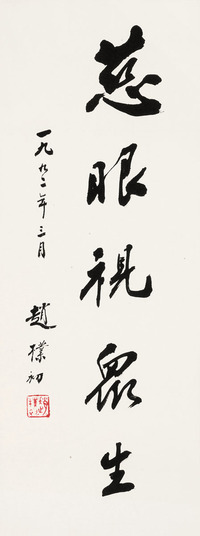 慈眼視眾生
一九九二年三月
趙樸初